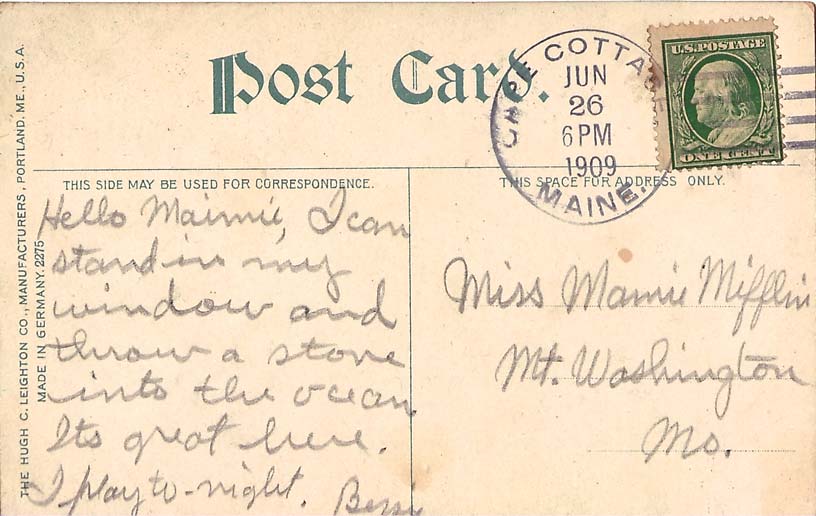 Post Card.
CAPE COTTAGE
JUN
26
6 PM
1909
MAINE.
U.S. POSTAGE
ONE CENT
THIS SIDE MAY BE USED FOR CORRESPONDENCE.
THIS SPACE FOR ADDRESS ONLY.
Hello Maimie, I can
stand in my
window and
throw a stone
into the ocean
Its great here.
I play to-night. Bessi
Miss Mamie Mifflin
Mt. Washington
Mo.
THE HUGH C. LEIGHTON CO., MANUFACTURERS, PORTLAND, ME., U.S.A.
MADE IN GERMANY. 2275